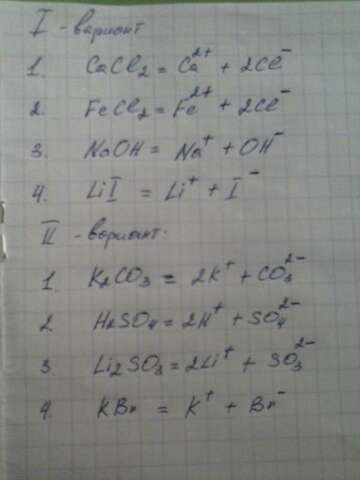 I - вариант
1. CaCl₂ = Ca²⁺ + 2Cl⁻
2. FeCl₂ = Fe²⁺ + 2Cl⁻
3. NaOH = Na⁺ + OH⁻
4. LiI = Li⁺ + I⁻
II - вариант:
1. K₂CO₃ = 2K⁺ + CO₃²⁻
2. H₂SO₄ = 2H⁺ + SO₄²⁻
3. Li₂SO₃ = 2Li⁺ + SO₃²⁻
4. KBr = K⁺ + Br⁻